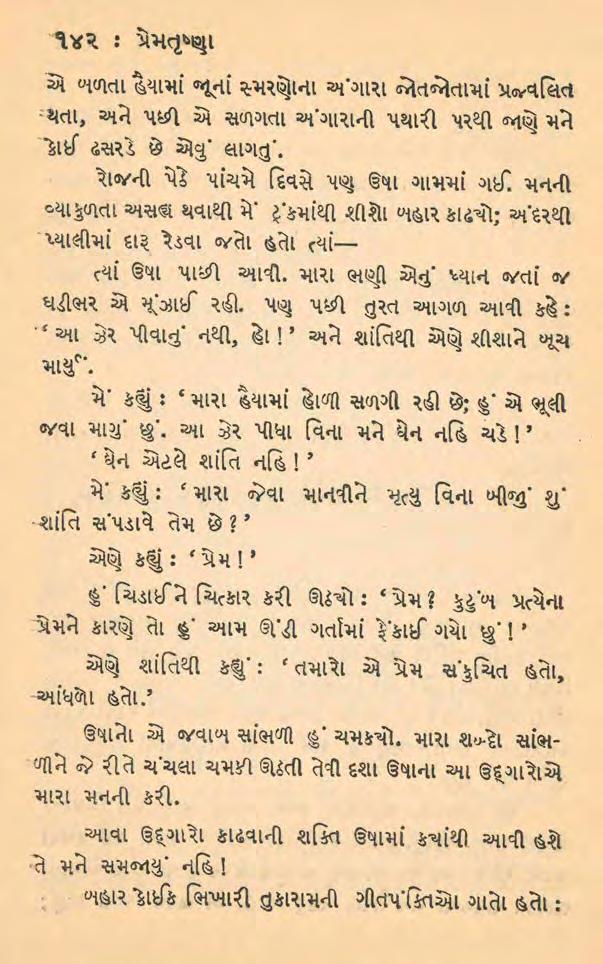 ૧૪૨ : પ્રેમતૃષ્ણા
એ બળતા હૈયામાં જૂનાં સ્મરણોના અંગારા જોતજોતામાં પ્રજ્વલિત
થતા, અને પછી એ સળગતા અંગારાની પથારી પરથી જાણે મને
કોઈ ઢસરડે છે એવું લાગતું.
રોજની પેઠે પાંચમે દિવસે પણ ઉષા ગામમાં ગઈ. મનની
વ્યાકુળતા અસહ્ય થવાથી મેં ટ્રંકમાંથી શીશો બહાર કાઢ્યો; અંદરથી
પ્યાલીમાં દારૂ રેડવા જતો હતો ત્યાં—
ત્યાં ઉષા પાછી આવી. મારા ભણી એનું ધ્યાન જતાં જ
ઘડીભર એ મૂંઝાઈ રહી. પણ પછી તુરત આગળ આવી કહે :
‘આ ઝેર પીવાનું નથી, હો !’ અને શાંતિથી એણે શીશાને બૂચ
માર્યું.
મેં કહ્યું : ‘મારા હૈયામાં હોળી સળગી રહી છે; હું એ ભૂલી
જવા માગું છું. આ ઝેર પીધા વિના મને ઘેન નહિ ચડે !’
‘ઘેન એટલે શાંતિ નહિ !’
મેં કહ્યું : ‘મારા જેવા માનવીને મૃત્યુ વિના બીજું શું
શાંતિ સંપડાવે તેમ છે ?’
એણે કહ્યું : ‘પ્રેમ !’
હું ચિડાઈને ચિત્કાર કરી ઊઠ્યો : ‘પ્રેમ ? કુટુંબ પ્રત્યેના
પ્રેમને કારણે તો હું આમ ઊંડી ગર્તામાં ફેંકાઈ ગયો છું !’
એણે શાંતિથી કહ્યું : ‘તમારો એ પ્રેમ સંકુચિત હતો,
આંધળો હતો.’
ઉષાનો એ જવાબ સાંભળી હું ચમક્યો. મારા શબ્દો સાંભ-
ળીને જે રીતે ચંચલા ચમકી ઊઠતી તેવી દશા ઉષાના આ ઉદ્ગારોએ
મારા મનની કરી.
આવા ઉદ્ગારો કાઢવાની શક્તિ ઉષામાં ક્યાંથી આવી હશે
તે મને સમજાયું નહિ !
બહાર કોઈક ભિખારી તુકારામની ગીતપંક્તિઓ ગાતો હતો :